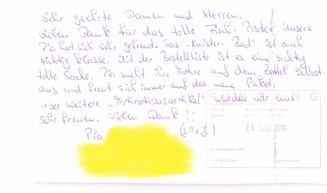 Sehr geehrte Damen und Herren.
vielen Dank für das tolle Fisch-Poster, unsere
Pia hat sich sehr gefreut. das "Knister-Bad" ist auch
richtig klasse. Mit der Bestellliste ist es eine richtig
tolle Sache. Pia sucht ihre Motive auf dem Zettel selbst
aus und freut sich immer auf das neue Paket.
über weitere "Motivationsartikel" würden wir uns
sehr freuen. Vielen Dank !!!
Pia